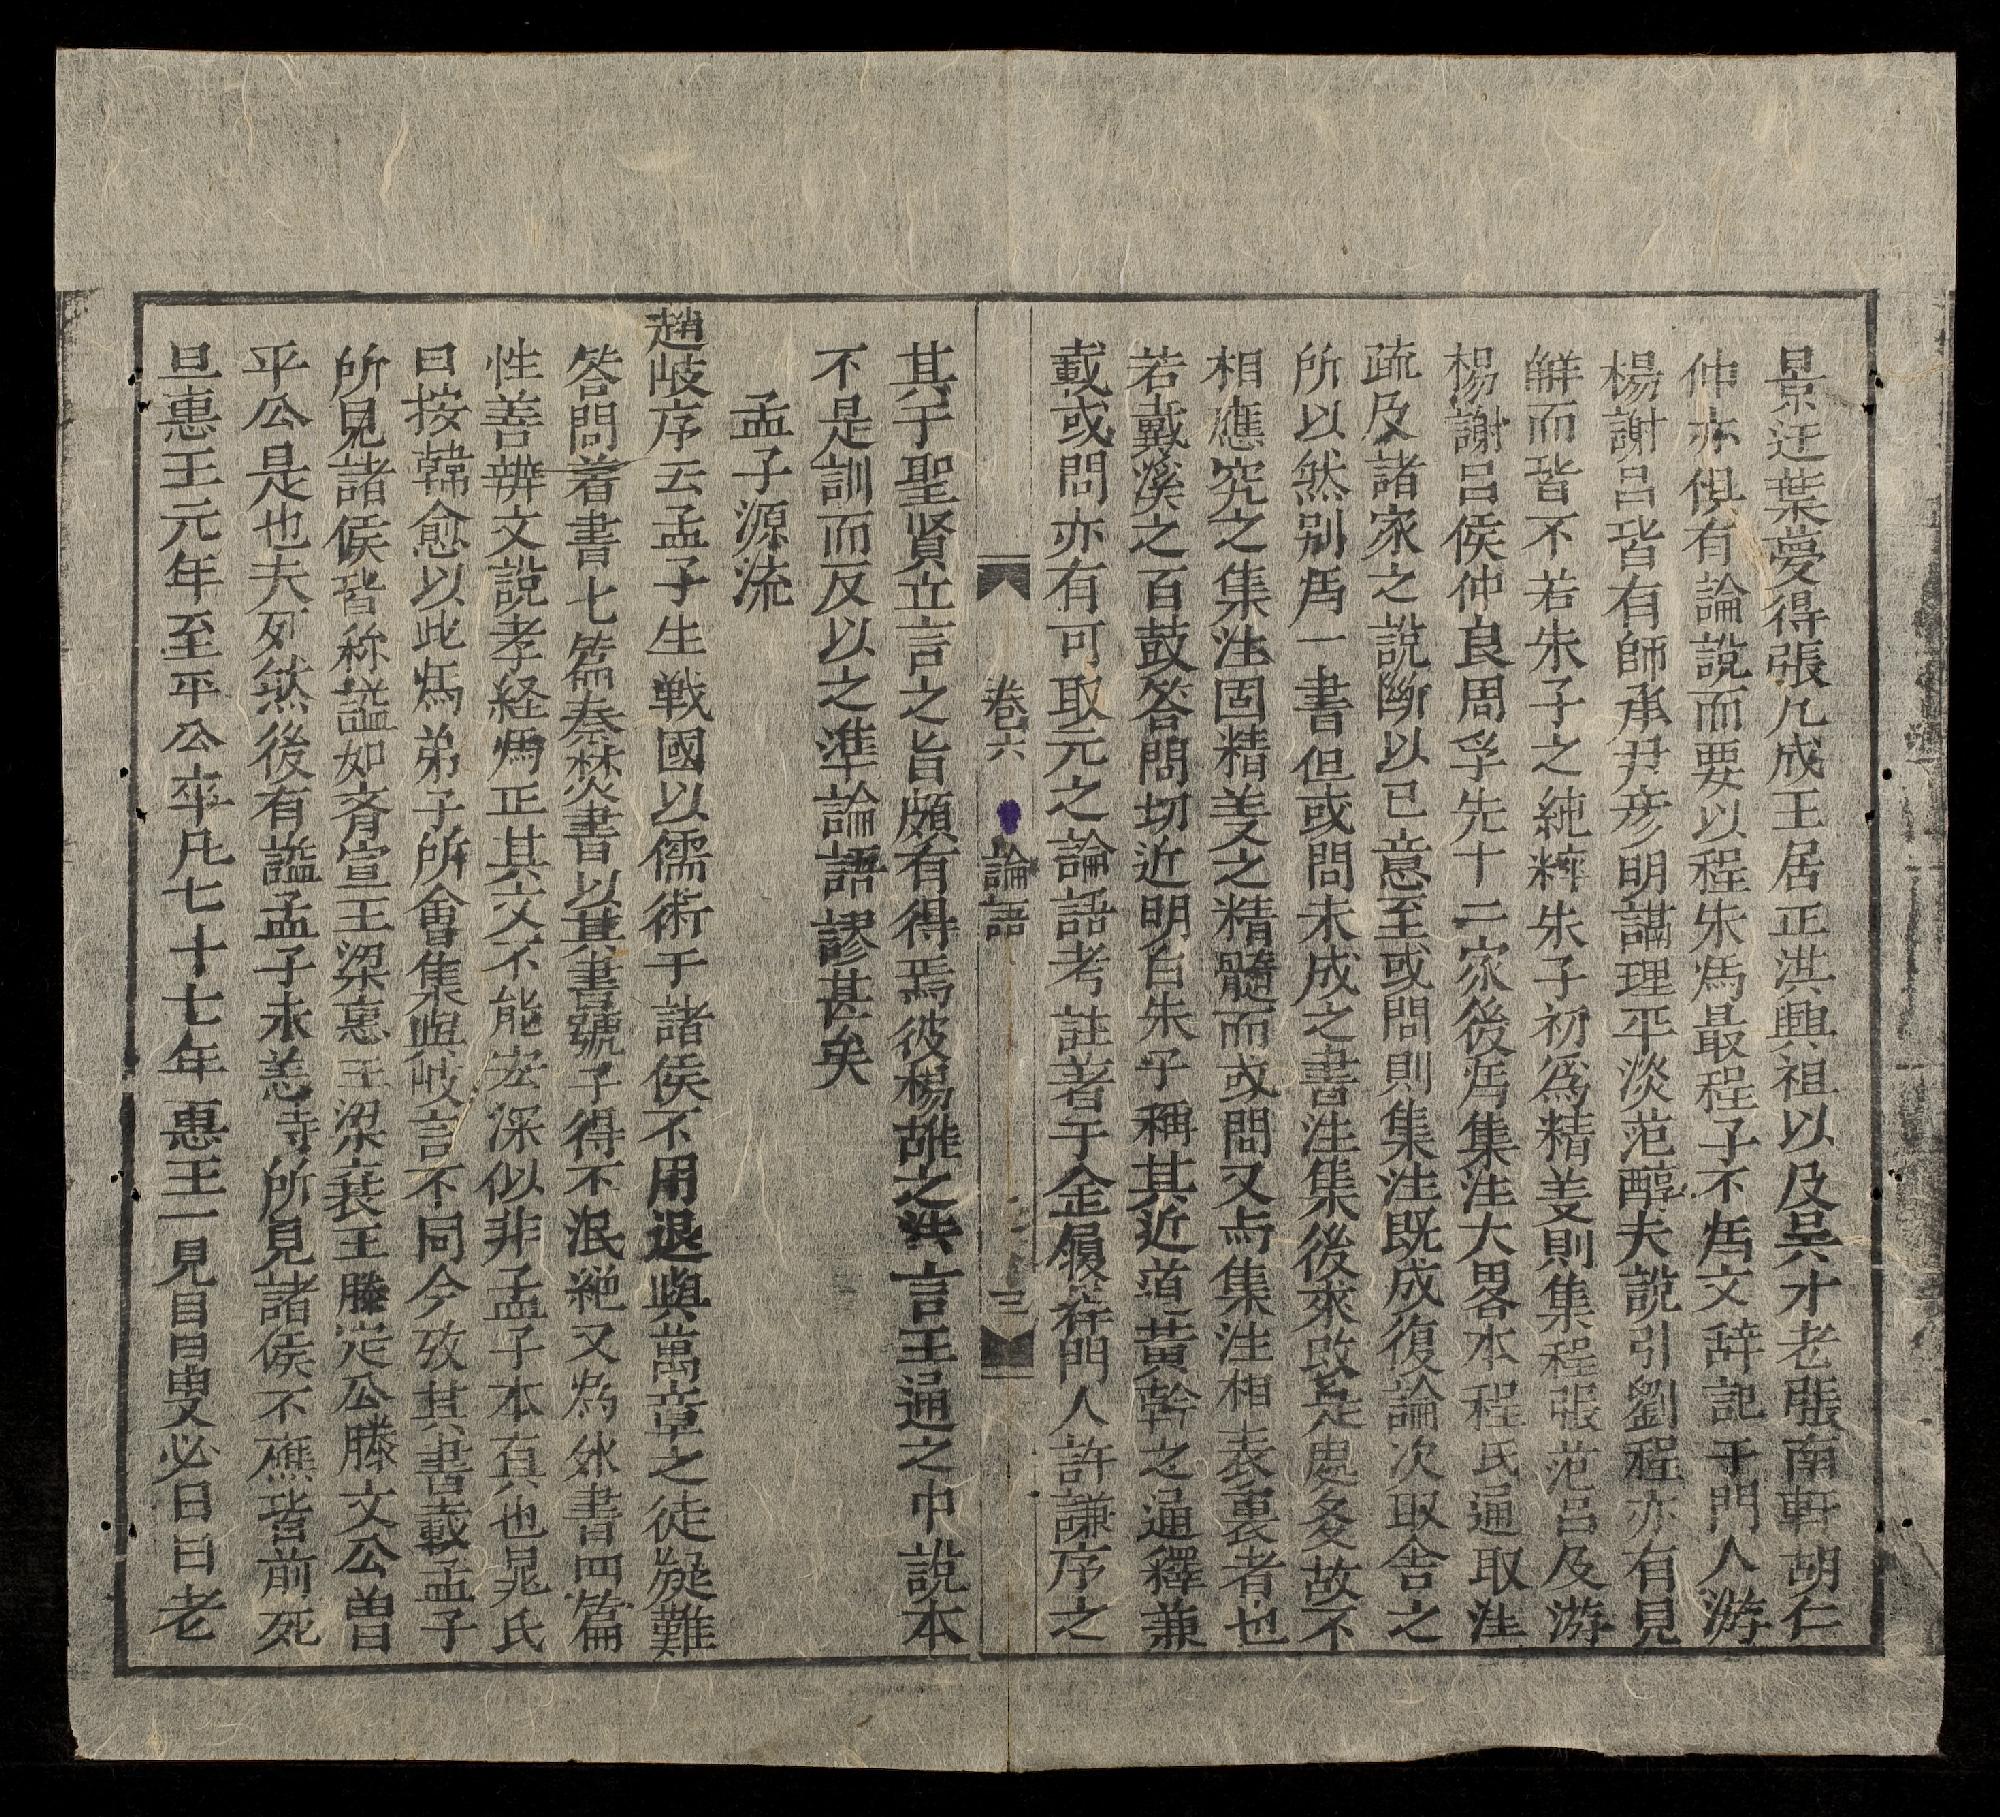 景迂葉夢得張九成王居正洪興祖以及吳才老張南軒胡仁
仲亦俱有論說而要以程朱爲最程子不爲文辞記于門人游
楊謝呂皆有師承尹彦明講理平淡范醇夫說引劉程亦有見
鮮而皆不若朱子之純粹朱子初為精義則集程張范呂及游
楊謝呂侯仲良周孚先十二家後爲集注大畧本程氏通取注
疏及諸家之說斷以已意至或問則集注既成復論次取舍之
所以然别爲一書但或問未成之書注集後來改定處多故不
相應究之集注固精義之精髓而或問又与集注相表裏者也
若戴溪之百鼓答問切近明白朱子稱其近道黃幹之通釋兼
載或問亦有可取元之論語考註著于金履祥門人許謙序之
卷六 論語 三
其于聖賢立言之旨頗有得焉彼楊雄之法言王通之中說本
不是訓而反以之準論語謬甚矣
孟子源流
趙岐序云孟子生戦國以儒術于諸侯不用退與萬章之徒疑難
答問着書七篇秦焚書以其書號子得不泯絕又爲外書四篇
性善辨文說孝経爲正其文不能宏深似非孟子本真也晁氏
曰按韓愈以此爲弟子所會集與岐言不同今攷其書載孟子
所見諸侯皆称謚如齊宣王梁惠王梁襄王滕定公滕文公曽
平公是也夫死然後有謚孟子永恙寺所見諸侯不應皆前死
且惠王元年至平公卒凡七十七年惠王一見目曰叟必曰曰老